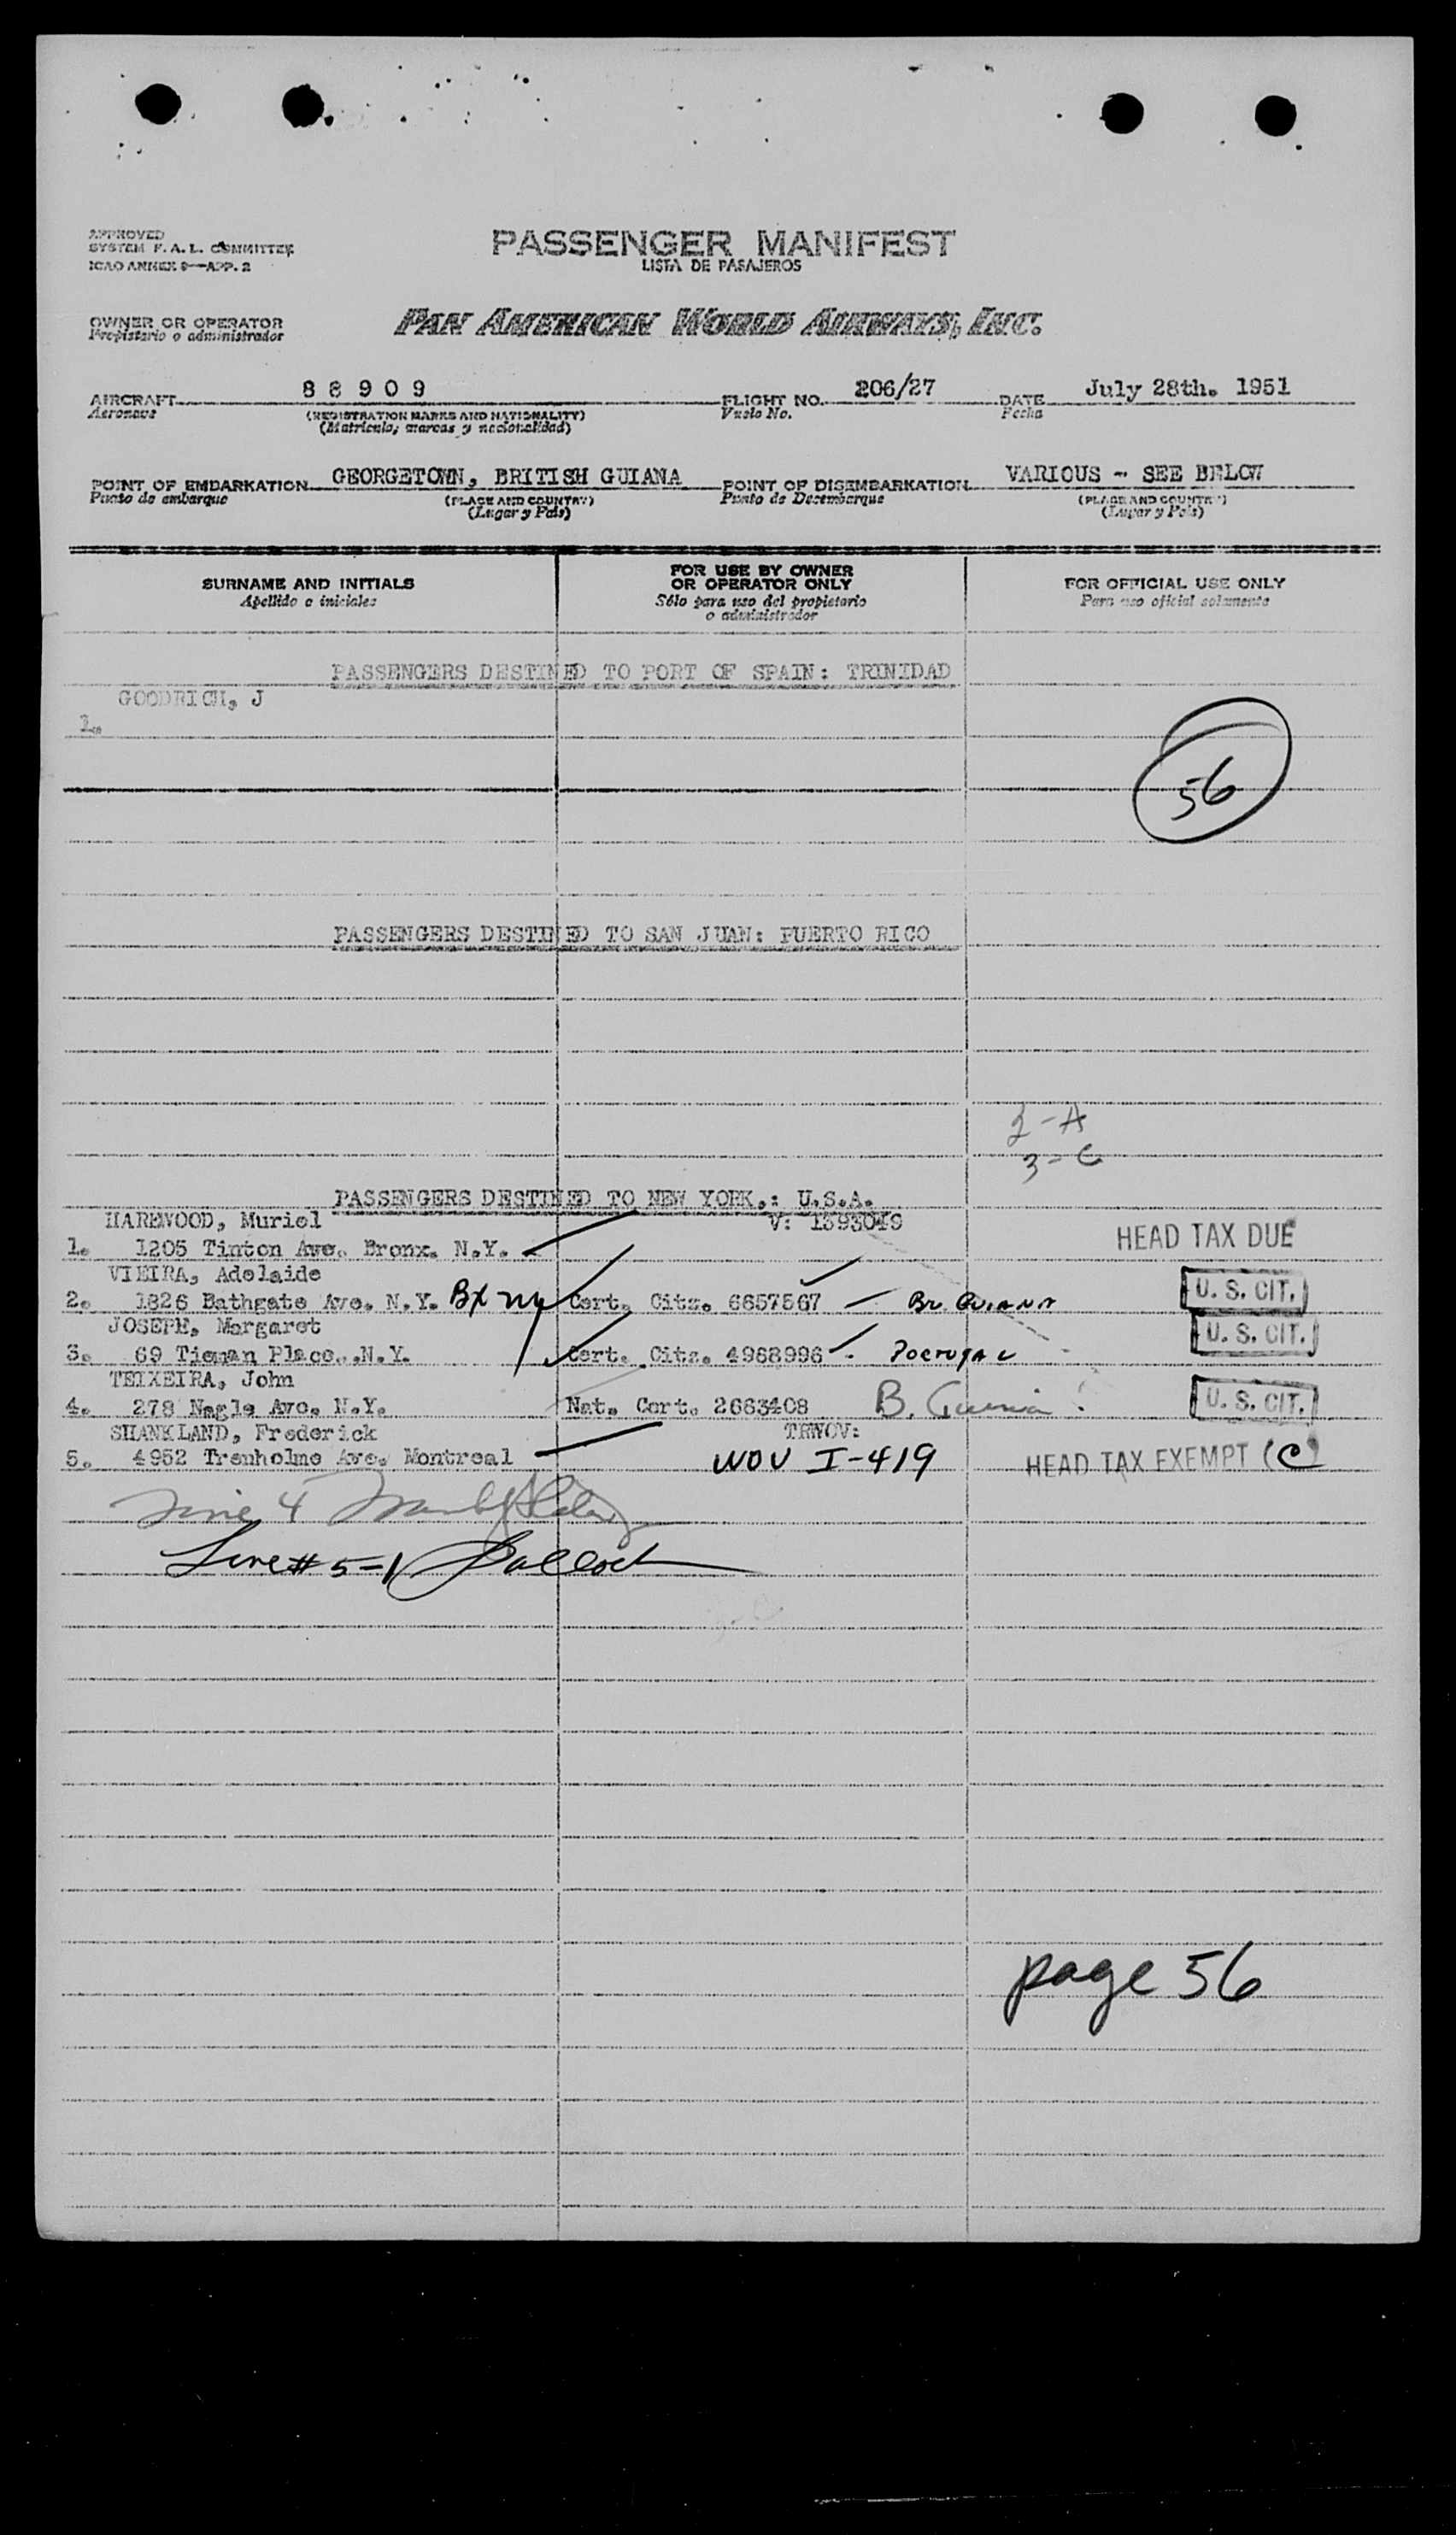 APPROVED
SYSTEM F. A. L. COMMITTEE
ICAO ANNEX 9—APP. 2
PASSENGER MANIFEST
LISTA DE PASAJEROS
OWNER OR OPERATOR
Propietario o administrador
PAN AMERICAN WORLD AIRWAYS, INC.
AIRCRAFT 88909
Aeronave
(REGISTRATION MARKS AND NATIONALITY)
(Matrícula, marcas y nacionalidad)
FLIGHT NO. 206/27
Vuelo No.
DATE July 28th. 1951
Fecha
POINT OF EMBARKATION GEORGETOWN, BRITISH GUIANA
Punto de embarque
(PLACE AND COUNTRY)
(Lugar y País)
POINT OF DISEMBARKATION VARIOUS - SEE BELOW
Punto de Desembarque
(PLACE AND COUNTRY)
(Lugar y País)
SURNAME AND INITIALS
Apellido e iniciales
FOR USE BY OWNER
OR OPERATOR ONLY
Sólo para uso del propietario
o administrador
FOR OFFICIAL USE ONLY
Para uso oficial solamente
PASSENGERS DESTINED TO PORT OF SPAIN: TRINIDAD
GOODRICH, J
1.
56
PASSENGERS DESTINED TO SAN JUAN: PUERTO RICO
2-A
3-C
PASSENGERS DESTINED TO NEW YORK.: U.S.A.
HAREWOOD, Muriel V: 1393049
1. 1205 Tinton Ave. Bronx. N.Y. HEAD TAX DUE
VIEIRA, Adelaide
2. 1826 Bathgate Ave. N.Y. BX NY Cert. Citz. 6857567 — Br. Guiana U. S. CIT.
JOSEPH, Margaret
3. 69 Tieman Place. .N.Y. Cert. Citz. 4968996 - Portugal U. S. CIT.
TEIXEIRA, John
4. 278 Nagle Ave. N.Y. Nat. Cert. 2683408 B. Guiana U. S. CIT.
SHANKLAND, Frederick TRWOV:
5. 4952 Trenholme Ave. Montreal WOV I-419 HEAD TAX EXEMPT (C)
Line 4
Line # 5-1
page 56